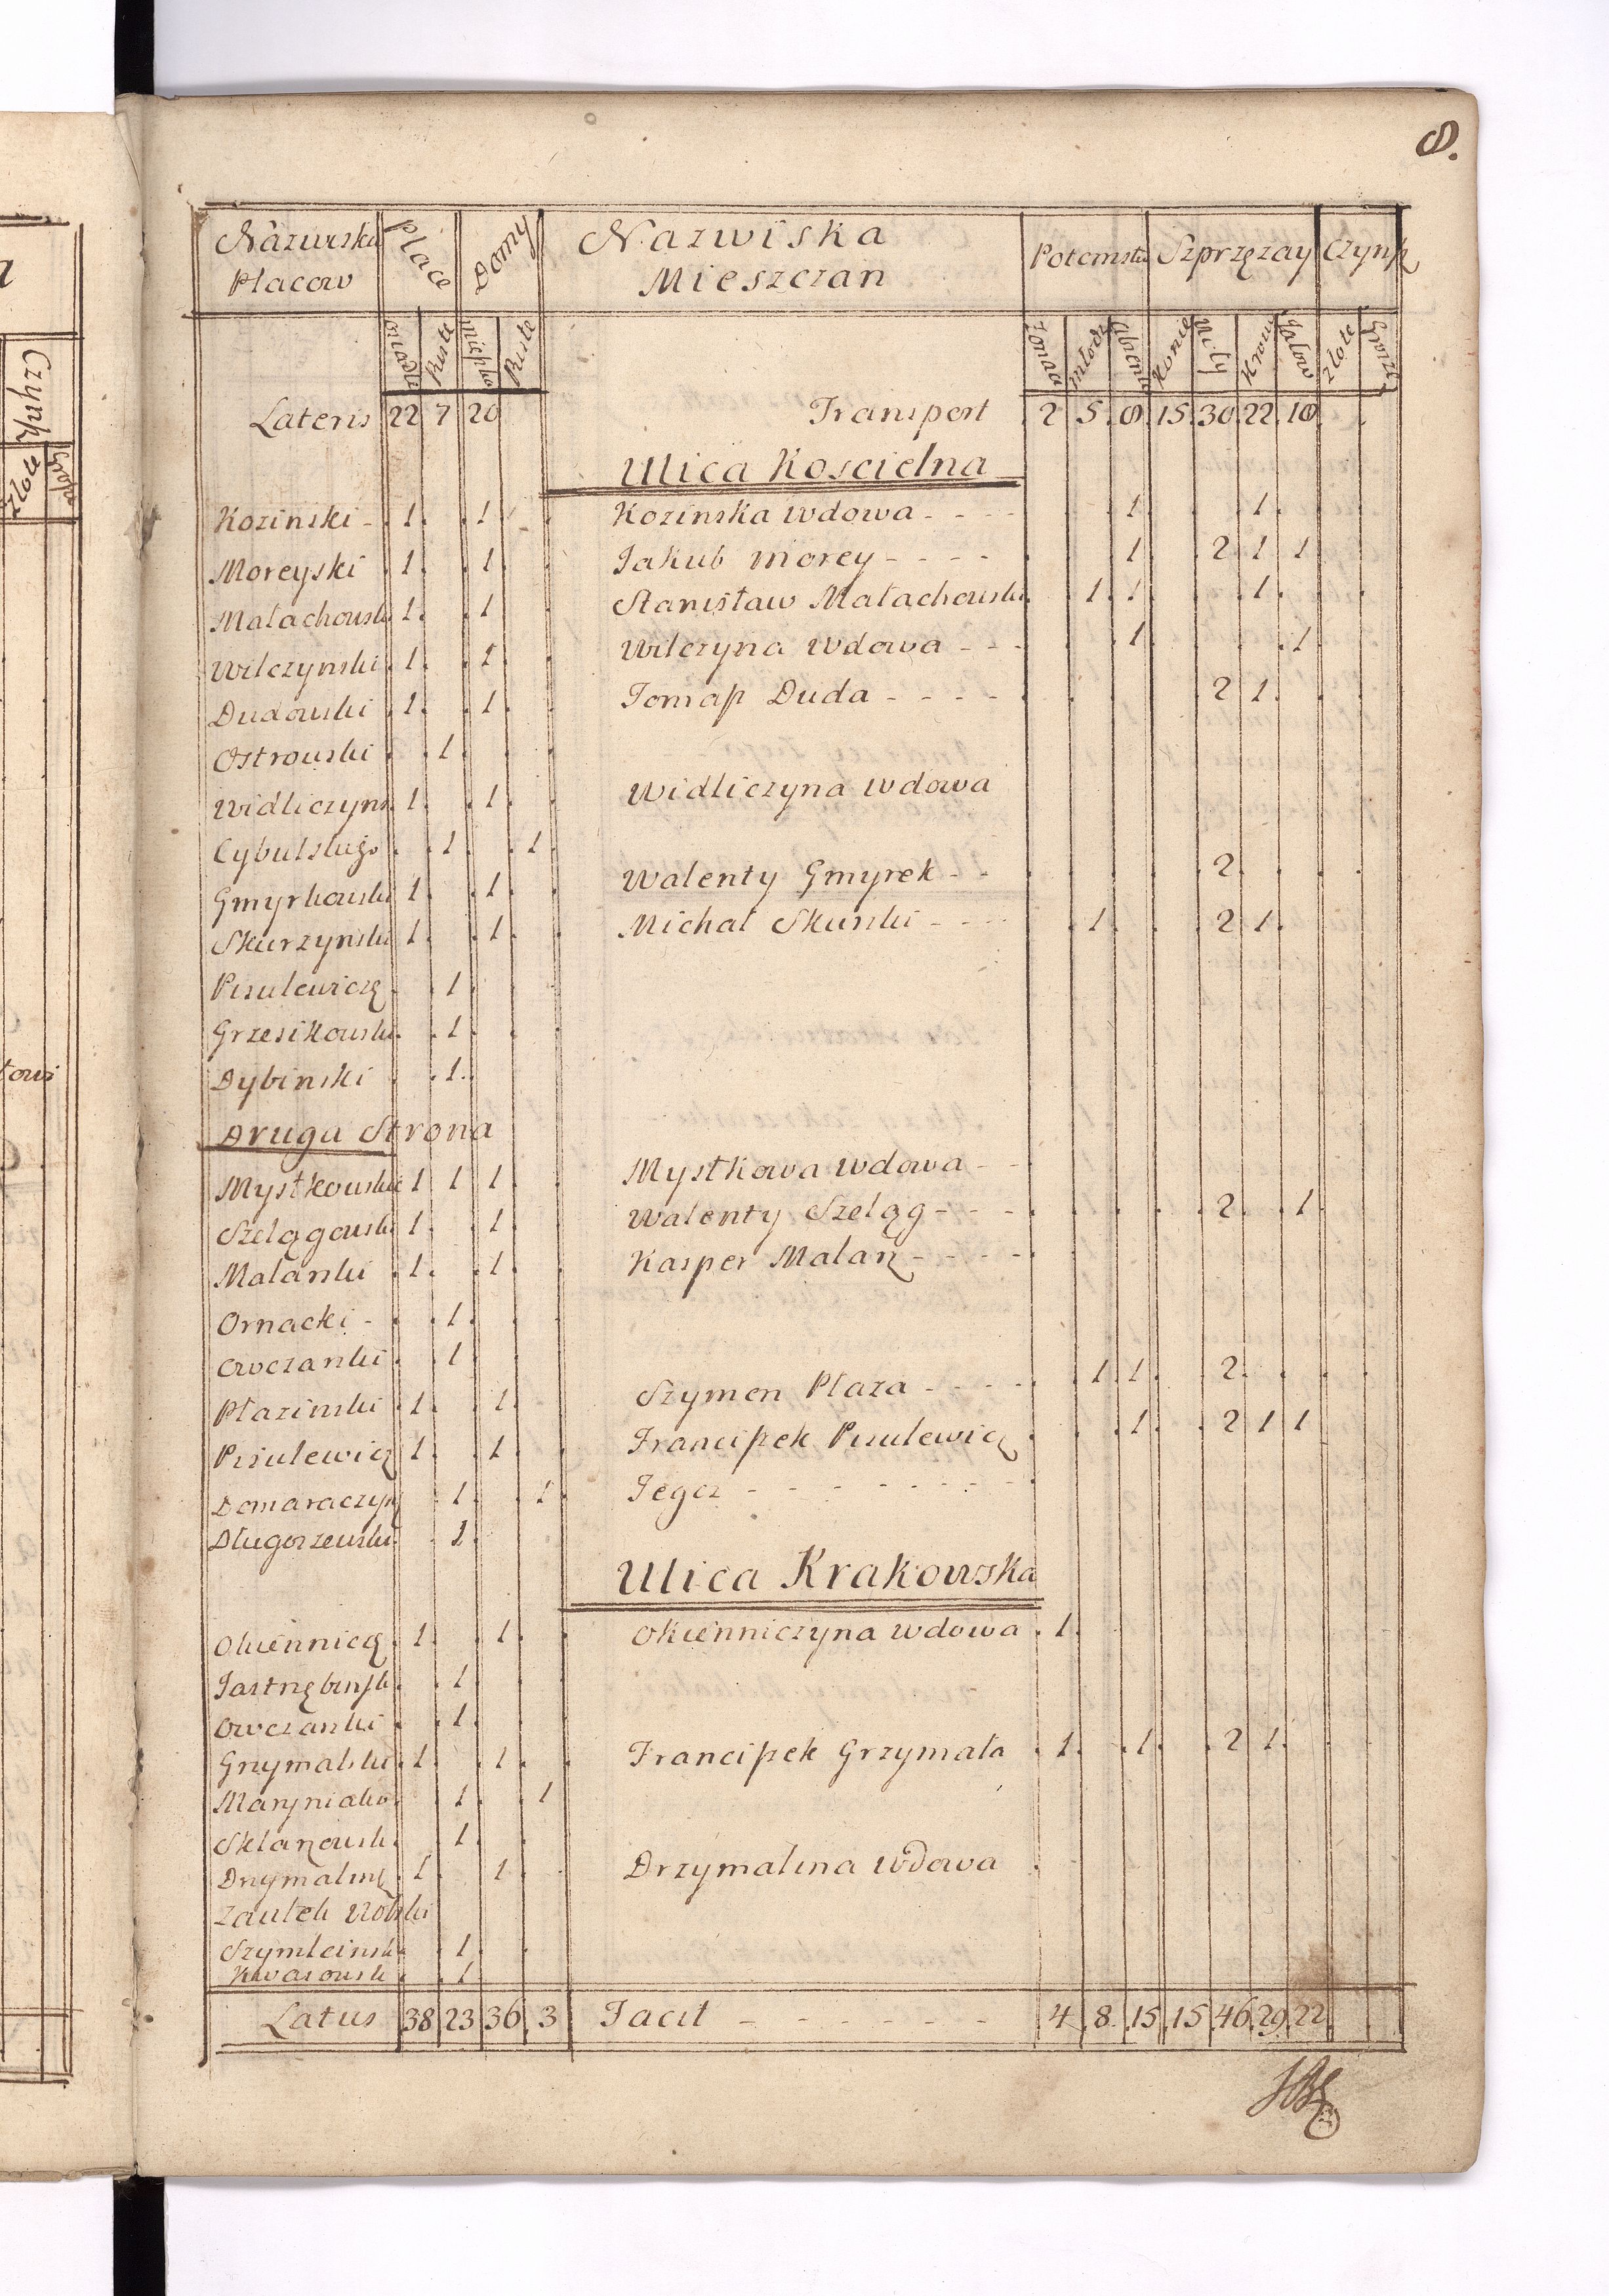 8.
Nazwiska Place Domy Nazwiska Potomstw Szprzęzay Czynsz
Placow Mieszczan
Puste Puste Konie Woły Krowy Złote
Lateris 22 7 20 Transport 2 5 8 15 30 22 18
Ulica Koscielna
Kozinski 1 1 Kozinska wdowa 1 1
Moreyski 1 1 Jakub Morey 1 2 1 1
Małachowski 1 1 Stanisław Małachowski 1 1 1
Wilczynski 1 1 Wilczyna wdowa 1 1
Dudowski 1 1 Tomasz Duda 2 1
Ostrowski 1
Widliczyn 1 1 Widliczyna wdowa
Cybulskigo 1 1
Gmyrkowski 1 1 Walenty Gmyrek 2
Skurzynski 1 1 Michał Skurski 1 2 1
Pisulewicz 1
Grzesikowski 1
Dybinski 1
Druga Strona
Mystkowski 1 1 1 Mystkowa wdowa
Szelągowski 1 1 Walenty Szeląg 2 1
Malanski 1 1 Kasper Malarz
Ornacki 1
Owczarski 1
Płazinski 1 1 Szymon Płaza 1 1 2
Pisulewicz 1 1 Franciszek Pisulewicz 1 2 1 1
Domaraczyn 1 1 Tegoz
Długoszewski 1
Ulica Krakowska
Okiennicz 1 1 Okienniczyna wdowa 1
Jastrzębinsk 1
Owczarski 1
Grzymalski 1 1 Franciszek Grzymała 1 1 2 1
Maryniako 1 1
Sklarzowsk 1
Drzymalinę 1 1 Drzymalina wdowa
Zaułek
1
Kwasowski 1
Latus 38 23 36 3 Facit 4 8 15 15 46 29 22
Czynsz
Złote
towi